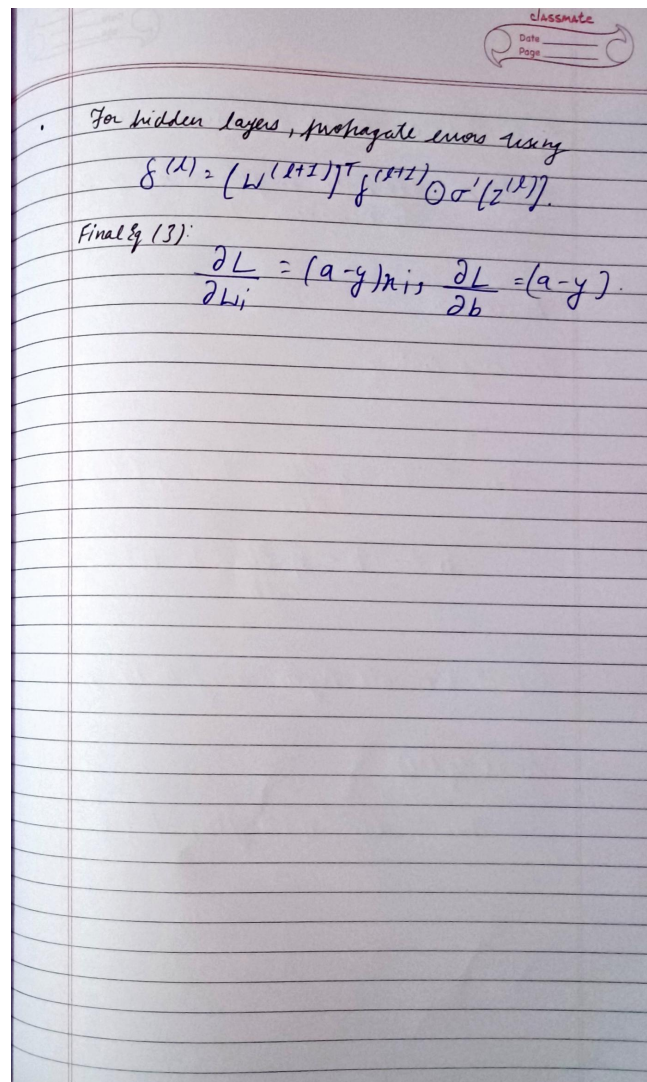 classmate
Date
Page
. For hidden layers, propagate errors using
δ^(l) = (W^(l+1))^T δ^(l+1) ⊙ σ'(z^(l)).
Final Eq (3):
∂L/∂wi = (a-y)xi, ∂L/∂b = (a-y).